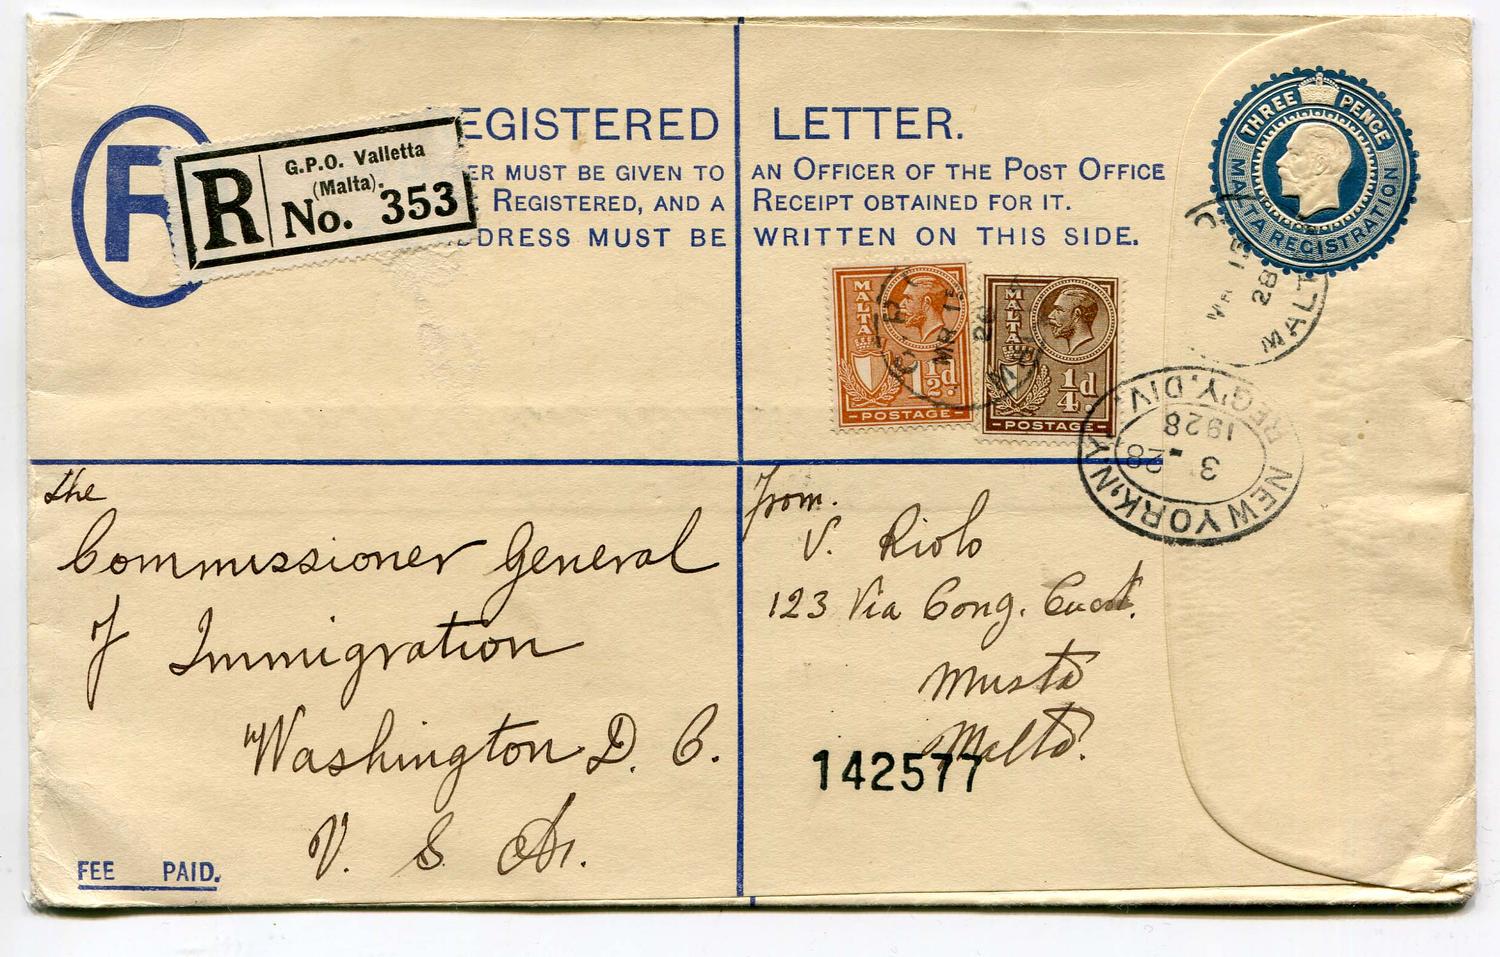 REGISTERED LETTER.
ER MUST BE GIVEN TO AN OFFICER OF THE POST OFFICE
REGISTERED, AND A RECEIPT OBTAINED FOR IT.
DRESS MUST BE WRITTEN ON THIS SIDE.
R
G.P.O. Valletta
(Malta).
No. 353
THREE PENCE
MALTA REGISTRATION
MALTA
1½d
POSTAGE
MALTA
¼d
POSTAGE
MR 15
28
MALT
NEW YORK, N.Y. REG'Y. DIV.
3 - 28
1928
the
Commissioner General
of Immigration
Washington D. C.
U. S. A.
From.
V. Riolo
123 Via Cong.
Musta
Malta.
142577
FEE PAID.